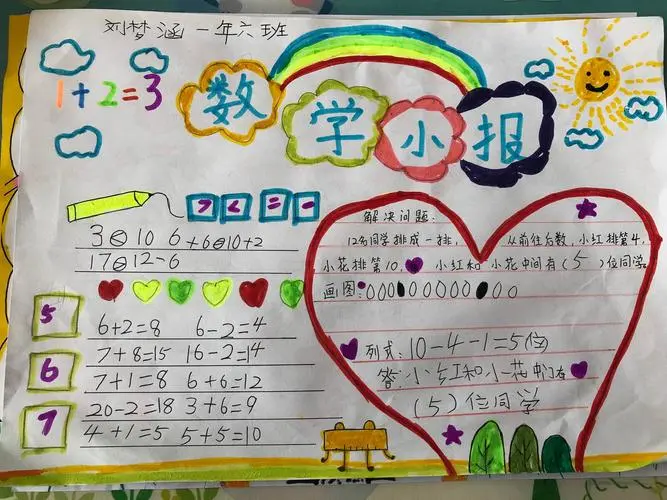 刘梦涵 一年六班
1+2=3
数学小报
> < = -
3<10 6+6>10+2
17>12-6
5
6+2=8 6-2=4
7+8=15 16-2=14
6
7+1=8 6+6=12
20-2=18 3+6=9
7
4+1=5 5+5=10
解决问题:
12名同学排成一排,从前往后数,小红排第4,
小花排第10,小红和小花中间有(5)位同学
画图:
列式:10-4-1=5位
答小红和小花中间有
(5)位同学